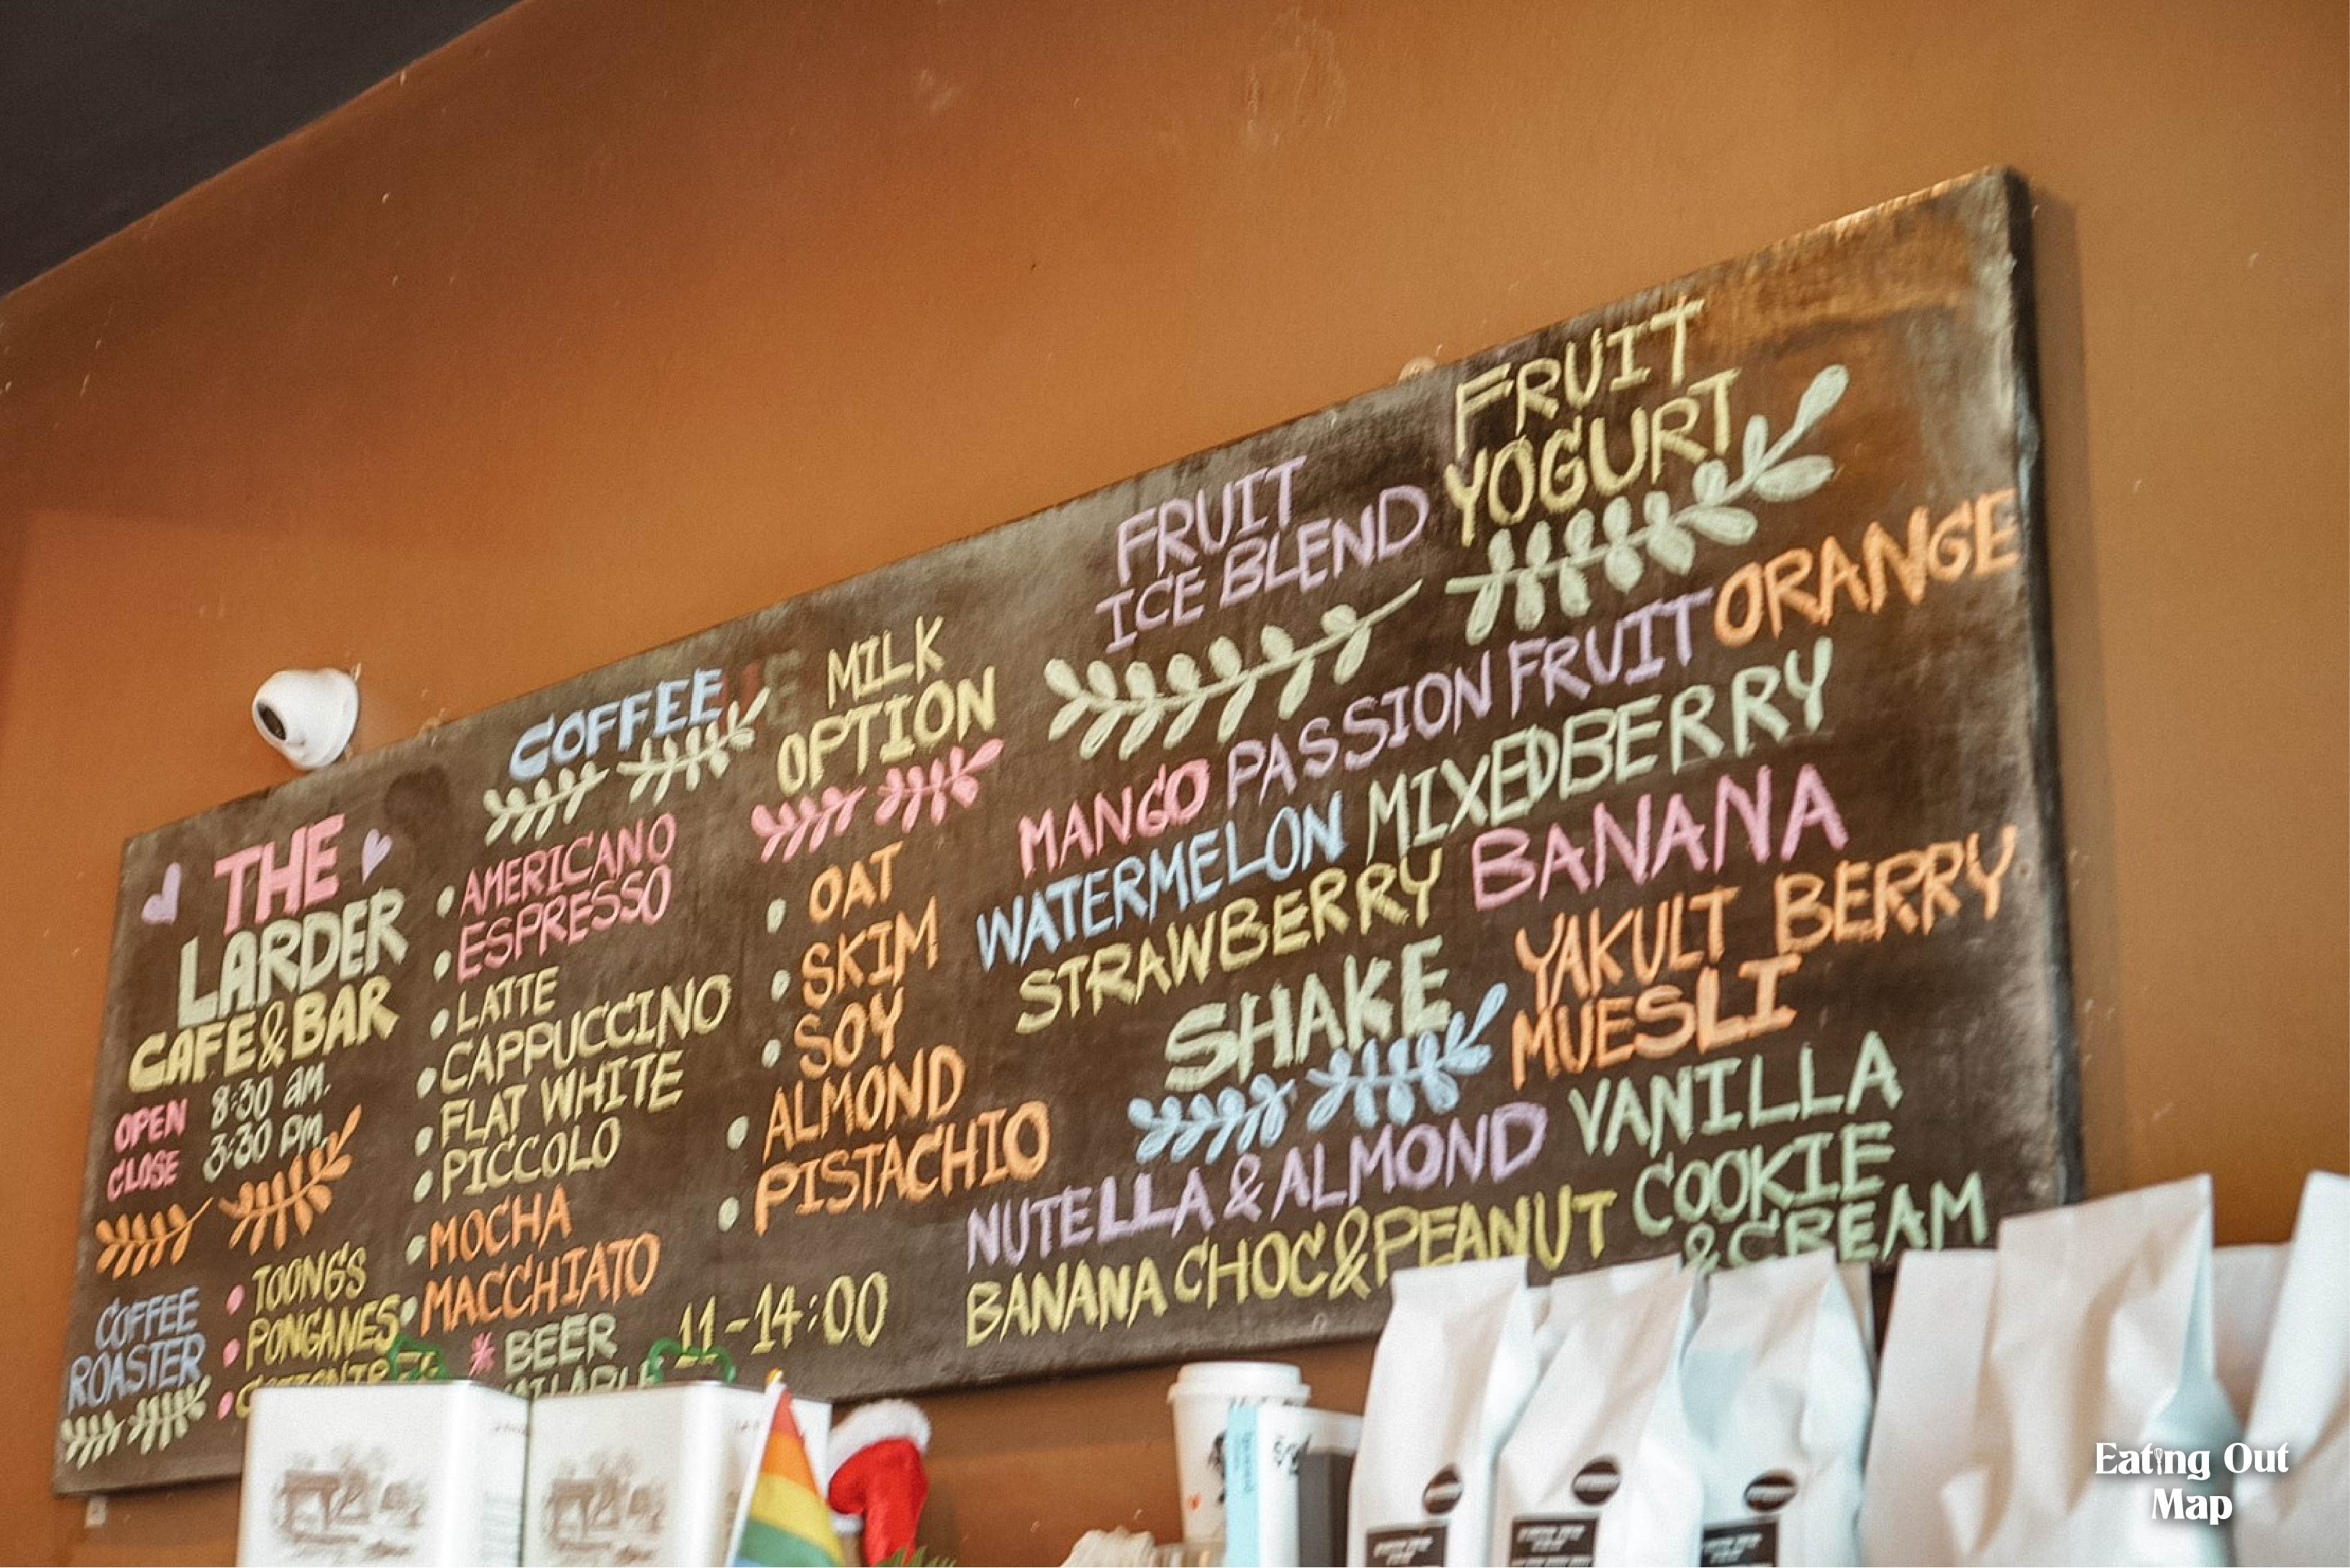 THE
LARDER
CAFE & BAR
OPEN 8:30 am.
CLOSE 3:30 pm.
COFFEE
ROASTER
TOONGS
PONGANES
COFFEE
AMERICANO
ESPRESSO
LATTE
CAPPUCCINO
FLAT WHITE
PICCOLO
MOCHA
MACCHIATO
* BEER 11-14:00
MILK
OPTION
OAT
SKIM
SOY
ALMOND
PISTACHIO
FRUIT
ICE BLEND
FRUIT
YOGURT
MANGO PASSION FRUIT ORANGE
WATERMELON MIXEDBERRY
STRAWBERRY BANANA
YAKULT BERRY
MUESLI
SHAKE
NUTELLA & ALMOND VANILLA
BANANA CHOC & PEANUT COOKIE
& CREAM
Eating Out
Map